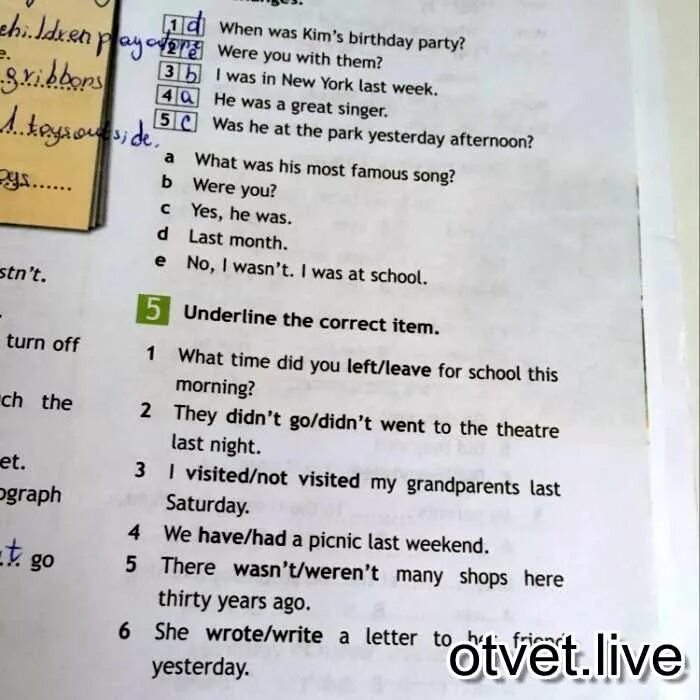 children play outside
1 d When was Kim's birthday party?
2 e Were you with them?
3 b I was in New York last week.
g ribbons
4 a He was a great singer.
5 c Was he at the park yesterday afternoon?
toys outside.
a What was his most famous song?
b Were you?
c Yes, he was.
d Last month.
e No, I wasn't. I was at school.
5 Underline the correct item.
turn off
1 What time did you left/leave for school this
morning?
the
2 They didn't go/didn't went to the theatre
last night.
3 I visited/not visited my grandparents last
Saturday.
4 We have/had a picnic last weekend.
go
5 There wasn't/weren't many shops here
thirty years ago.
6 She wrote/write a letter to her friend
yesterday.
otvet.live